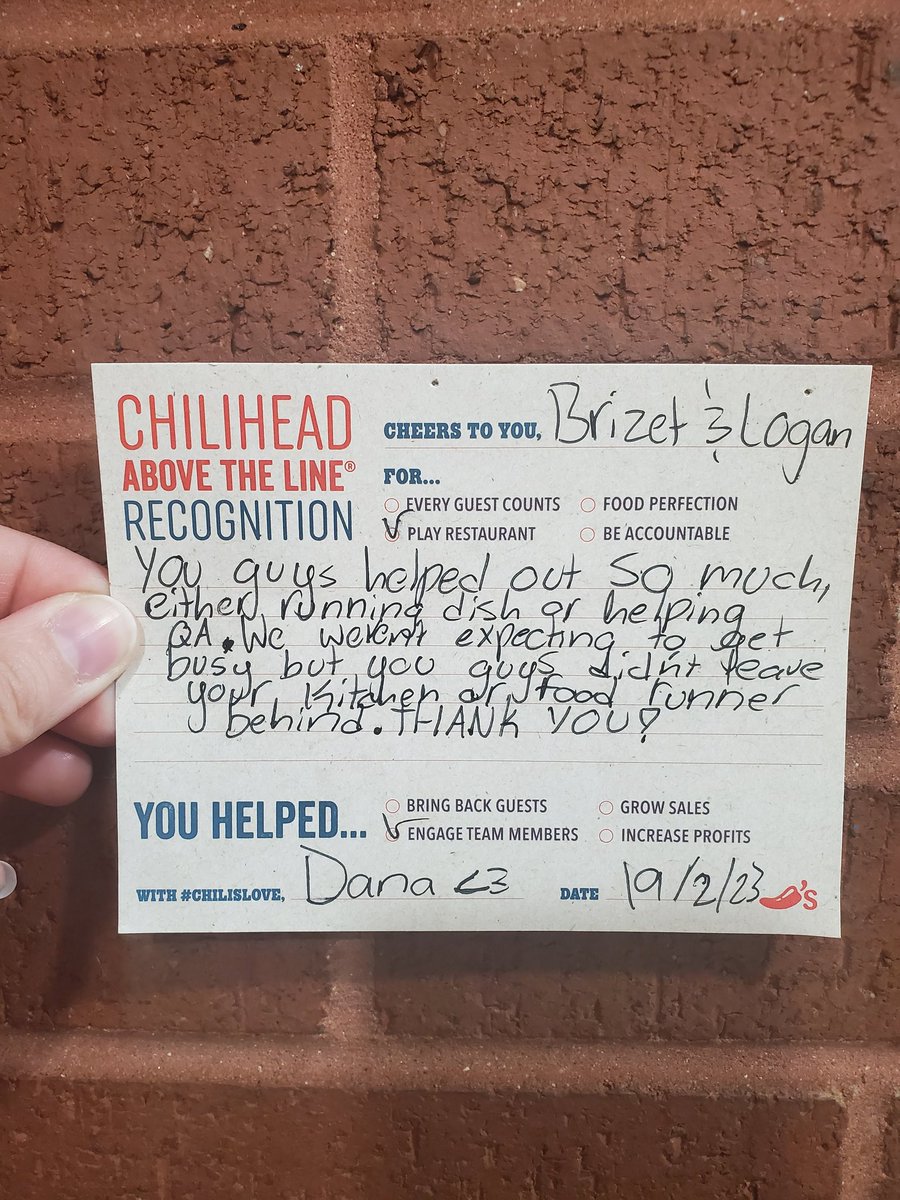 CHILIHEAD
ABOVE THE LINE®
RECOGNITION
CHEERS TO YOU, Brizet & Logan
FOR...
EVERY GUEST COUNTS
FOOD PERFECTION
PLAY RESTAURANT
BE ACCOUNTABLE
You guys helped out so much,
either running dish or helping
QA. We weren't expecting to get
busy but you guys didn't leave
your kitchen or food runner
behind. THANK YOU!
YOU HELPED...
BRING BACK GUESTS
GROW SALES
ENGAGE TEAM MEMBERS
INCREASE PROFITS
WITH #CHILISLOVE, Dana <3
DATE 19/2/23
's